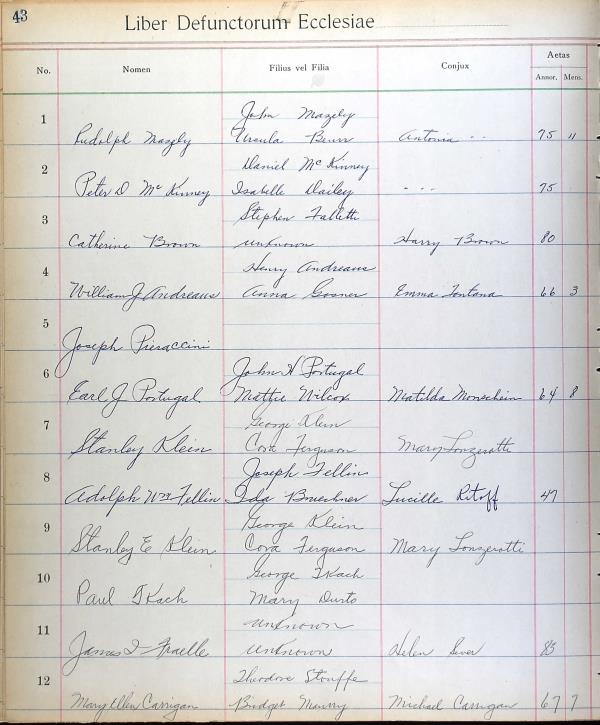 43
Liber Defunctorum Ecclesiae
No. Nomen Filius vel Filia Conjux Aetas
Annor. Mens.
1 John Mazely
Rudolph Mazely Ursula Antonia - - 75 11
2 Daniel McKinney
Peter D McKinney Isabelle Dailey - - - 75
3 Stephen
Catherine Brown unknown Harry Brown 80
4 Henry Andreaus
William J Andreaus Anna Gosner Emma Fontana 66 3
5
Joseph Pieraccini
6 John H Portugal
Earl J Portugal Mattie Wilcox Matilda Monschein 64 8
7 George Klein
Stanley Klein Cora Ferguson Mary Lonzerotti
8 Joseph Fellin
Adolph Wm Fellin Ida Brueckner Lucille Ritoff 47
9 George Klein
Stanley E Klein Cora Ferguson Mary Lonzerotti
10 George Tkach
Paul Tkach Mary Dusto
11 unknown
James unknown Helen 83
12 Theodore Stouffe
Mary Ellen Carrigan Bridget Michael Carrigan 67 7